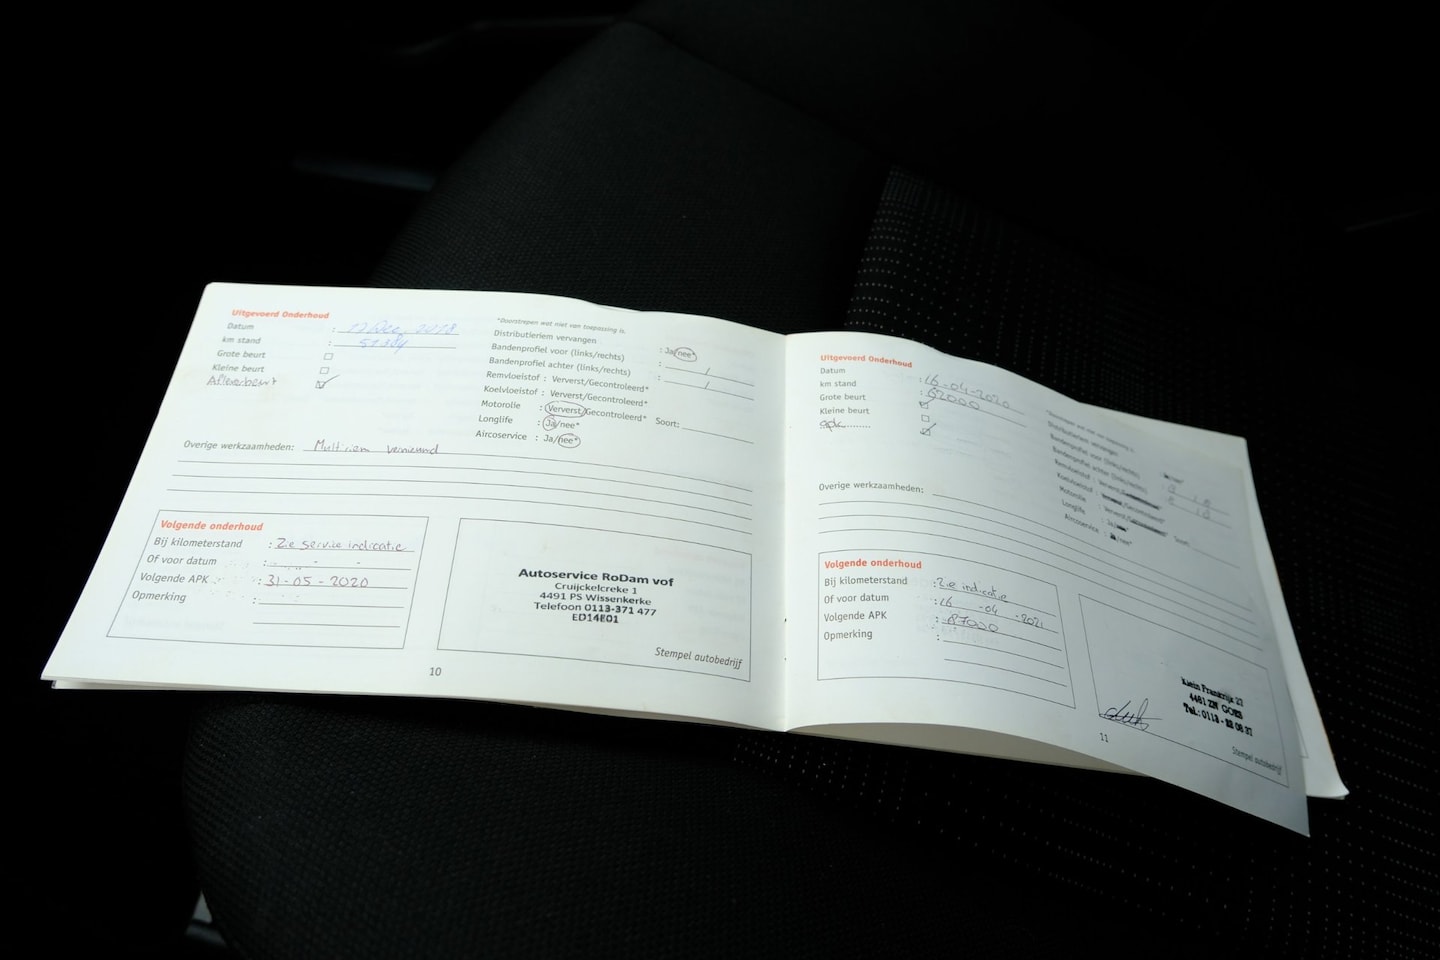 Uitgevoerd Onderhoud
Datum : 17 Dec 2018
km stand : 51384
Grote beurt
Kleine beurt
Afleverbeurt
*Doorstrepen wat niet van toepassing is.
Distributieriem vervangen : Ja/nee*
Bandenprofiel voor (links/rechts) : /
Bandenprofiel achter (links/rechts) : /
Remvloeistof : Ververst/Gecontroleerd*
Koelvloeistof : Ververst/Gecontroleerd*
Motorolie : Ververst/Gecontroleerd* Soort:
Longlife : Ja/nee*
Aircoservice : Ja/nee*
Overige werkzaamheden: Multiriem vernieuwd
Volgende onderhoud
Bij kilometerstand : Zie service indicatie
Of voor datum : - -
Volgende APK : 31-05-2020
Opmerking :
Autoservice RoDam vof
Cruijckelcreke 1
4491 PS Wissenkerke
Telefoon 0113-371 477
ED14E01
Stempel autobedrijf
10
Uitgevoerd Onderhoud
Datum : 16-04-2020
km stand : 62000
Grote beurt
Kleine beurt
apk
*Doorstrepen wat niet van toepassing is.
Distributieriem vervangen
Bandenprofiel voor (links/rechts)
Bandenprofiel achter (links/rechts)
Remvloeistof : Ververst/
Koelvloeistof : Ververst/Gecontroleerd*
Motorolie : Ververst/ Soort:
Longlife : Ja/
Aircoservice : /nee*
Overige werkzaamheden:
Volgende onderhoud
Bij kilometerstand : Zie indicatie
Of voor datum : 16 -04 -2021
Volgende APK : 87000
Opmerking :
Klein Frankrijk 27
4461 ZN GOES
Tel.: 0113 - 22 06 37
Stempel autobedrijf
11